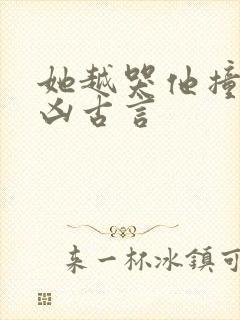 她越哭他撞
凶古言
来一杯冰鎮可